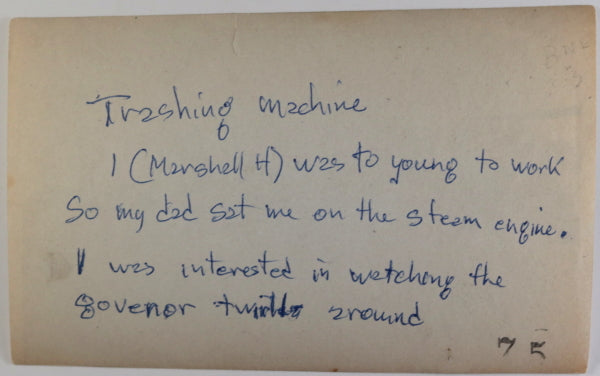 Trashing machine
I (Marshall H) was to young to work
So my dad sat me on the steam engine.
I was interested in watching the
govenor around
75